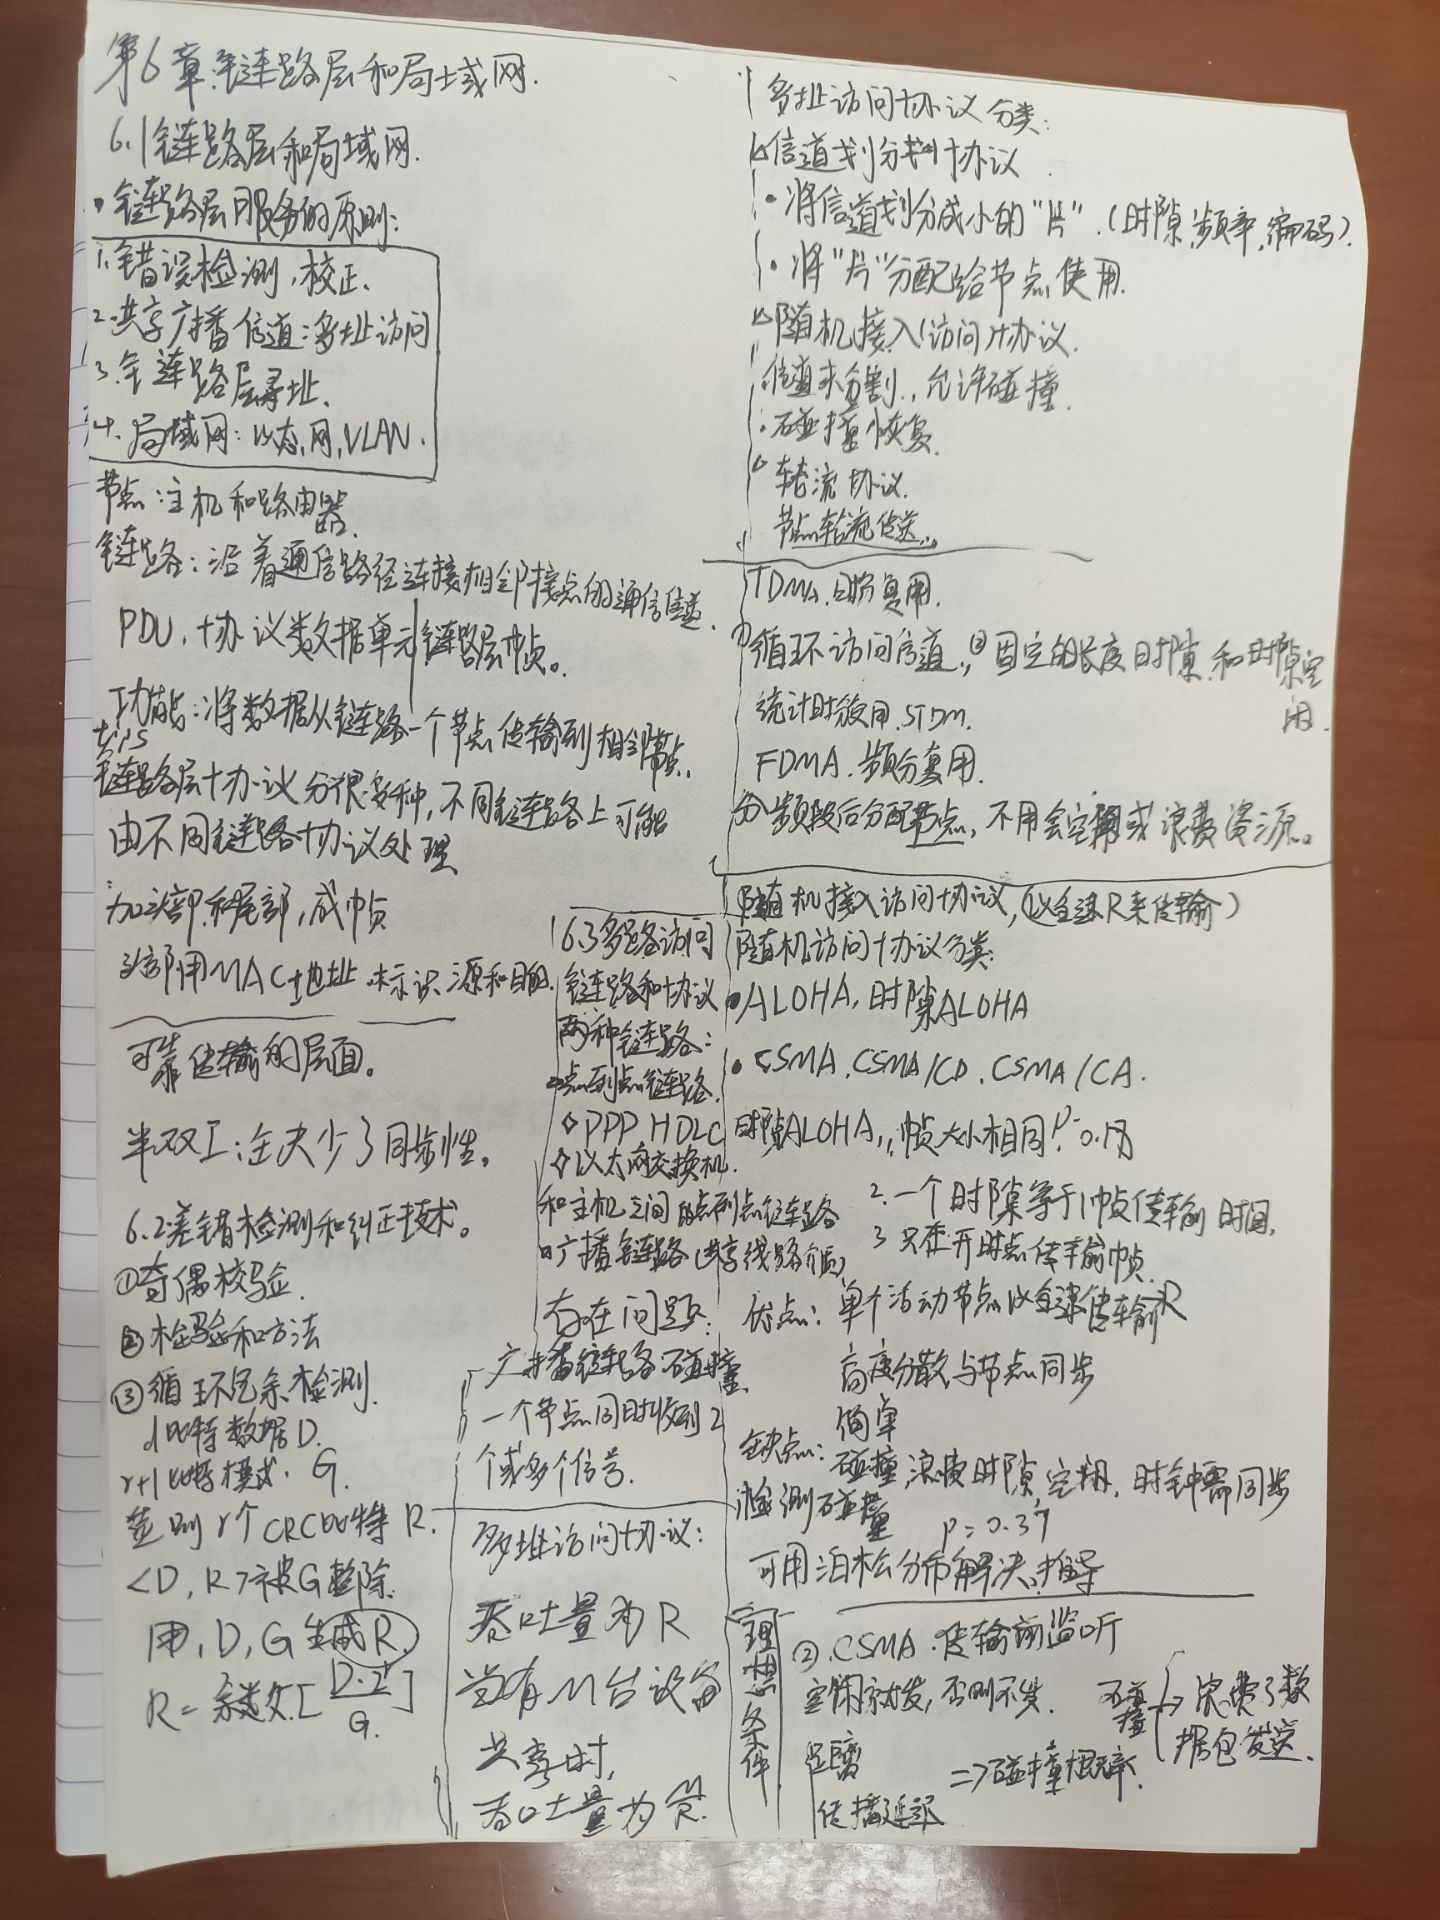 第6章 链路层和局域网.
6.1链路层和局域网.
• 链路层服务的原则:
1. 错误检测,校正.
2. 共享广播信道:多址访问
3. 链路层寻址.
4. 局域网:以态网,VLAN.
节点:主机和路由器.
链路:沿着通信路径连接相邻接点的通信信道.
PDU,协议数据单元 链路层帧。
功能:将数据从链路一个节点传输到相邻节点.
tips
链路层协议分很多种,不同链路上可能
由不同链路协议处理
加头部和尾部,成帧
头部用MAC地址.标识源和目的.
可靠传输的层面。
半双工:缺少了同步性。
6.2差错检测和纠正技术。
①奇偶校验.
②检验和方法
③循环冗余检测.
d比特数据D.
r+1比特模式. G.
差别 r个CRC比特 R.
<D, R>被G整除.
用,D,G生成R.
R= 余数[D·2^r/G.]
6.3多路访问
链路和协议
两种链路:
点到点链路.
◇PPP HDLC
◇以太网交换机
和主机之间的点到点链路
广播链路(共享线路介质)
存在问题:
广播链路碰撞.
一个节点同时收到2
个或多个信号.
多址访问协议:
吞吐量为R
当有M台设备
共享时,
吞吐量为R/M.
多址访问协议分类:
信道划分协议
• 将信道划分成小的"片".(时隙,频率,编码).
• 将"片"分配给节点使用.
随机接入(访问)协议.
信道未分割,允许碰撞.
碰撞恢复.
轮流协议.
节点轮流传送.
TDMA.时分复用.
①循环访问信道,②固定的长度时隙.和时隙空闲.
统计时分复用.STDM.
FDMA.频分复用.
分频段后分配节点,不用会空闲或浪费资源。
随机接入访问协议,(以全速R来传输)
随机访问协议分类:
• ALOHA,时隙ALOHA
• CSMA.CSMA/CD.CSMA/CA.
时隙ALOHA,帧大小相同 P=0.18
2.一个时隙等于1帧传输时间.
3 只在开时点传输帧.
优点:单个活动节点以全速传输R
高度分散与节点同步
简单
缺点:碰撞浪费时隙,空闲,时钟需同步
检测碰撞 P=0.37
可用泊松分布解决.推导
理想条件
②.CSMA.传输前监听
空闲就发,否则不发.
距离
传播延迟 =>碰撞概率.
碰撞 → 浪费了数
据包发送.